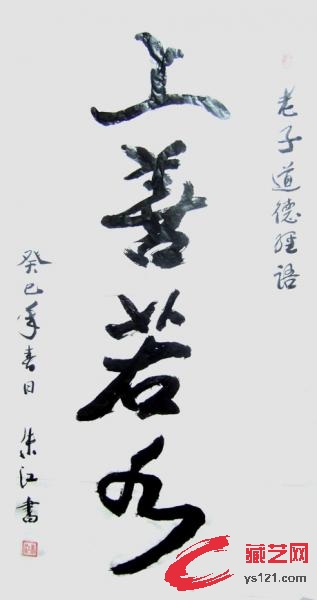 老子道德经语
上善若水
癸巳年春日 朱江书
藏艺网
ys121.com